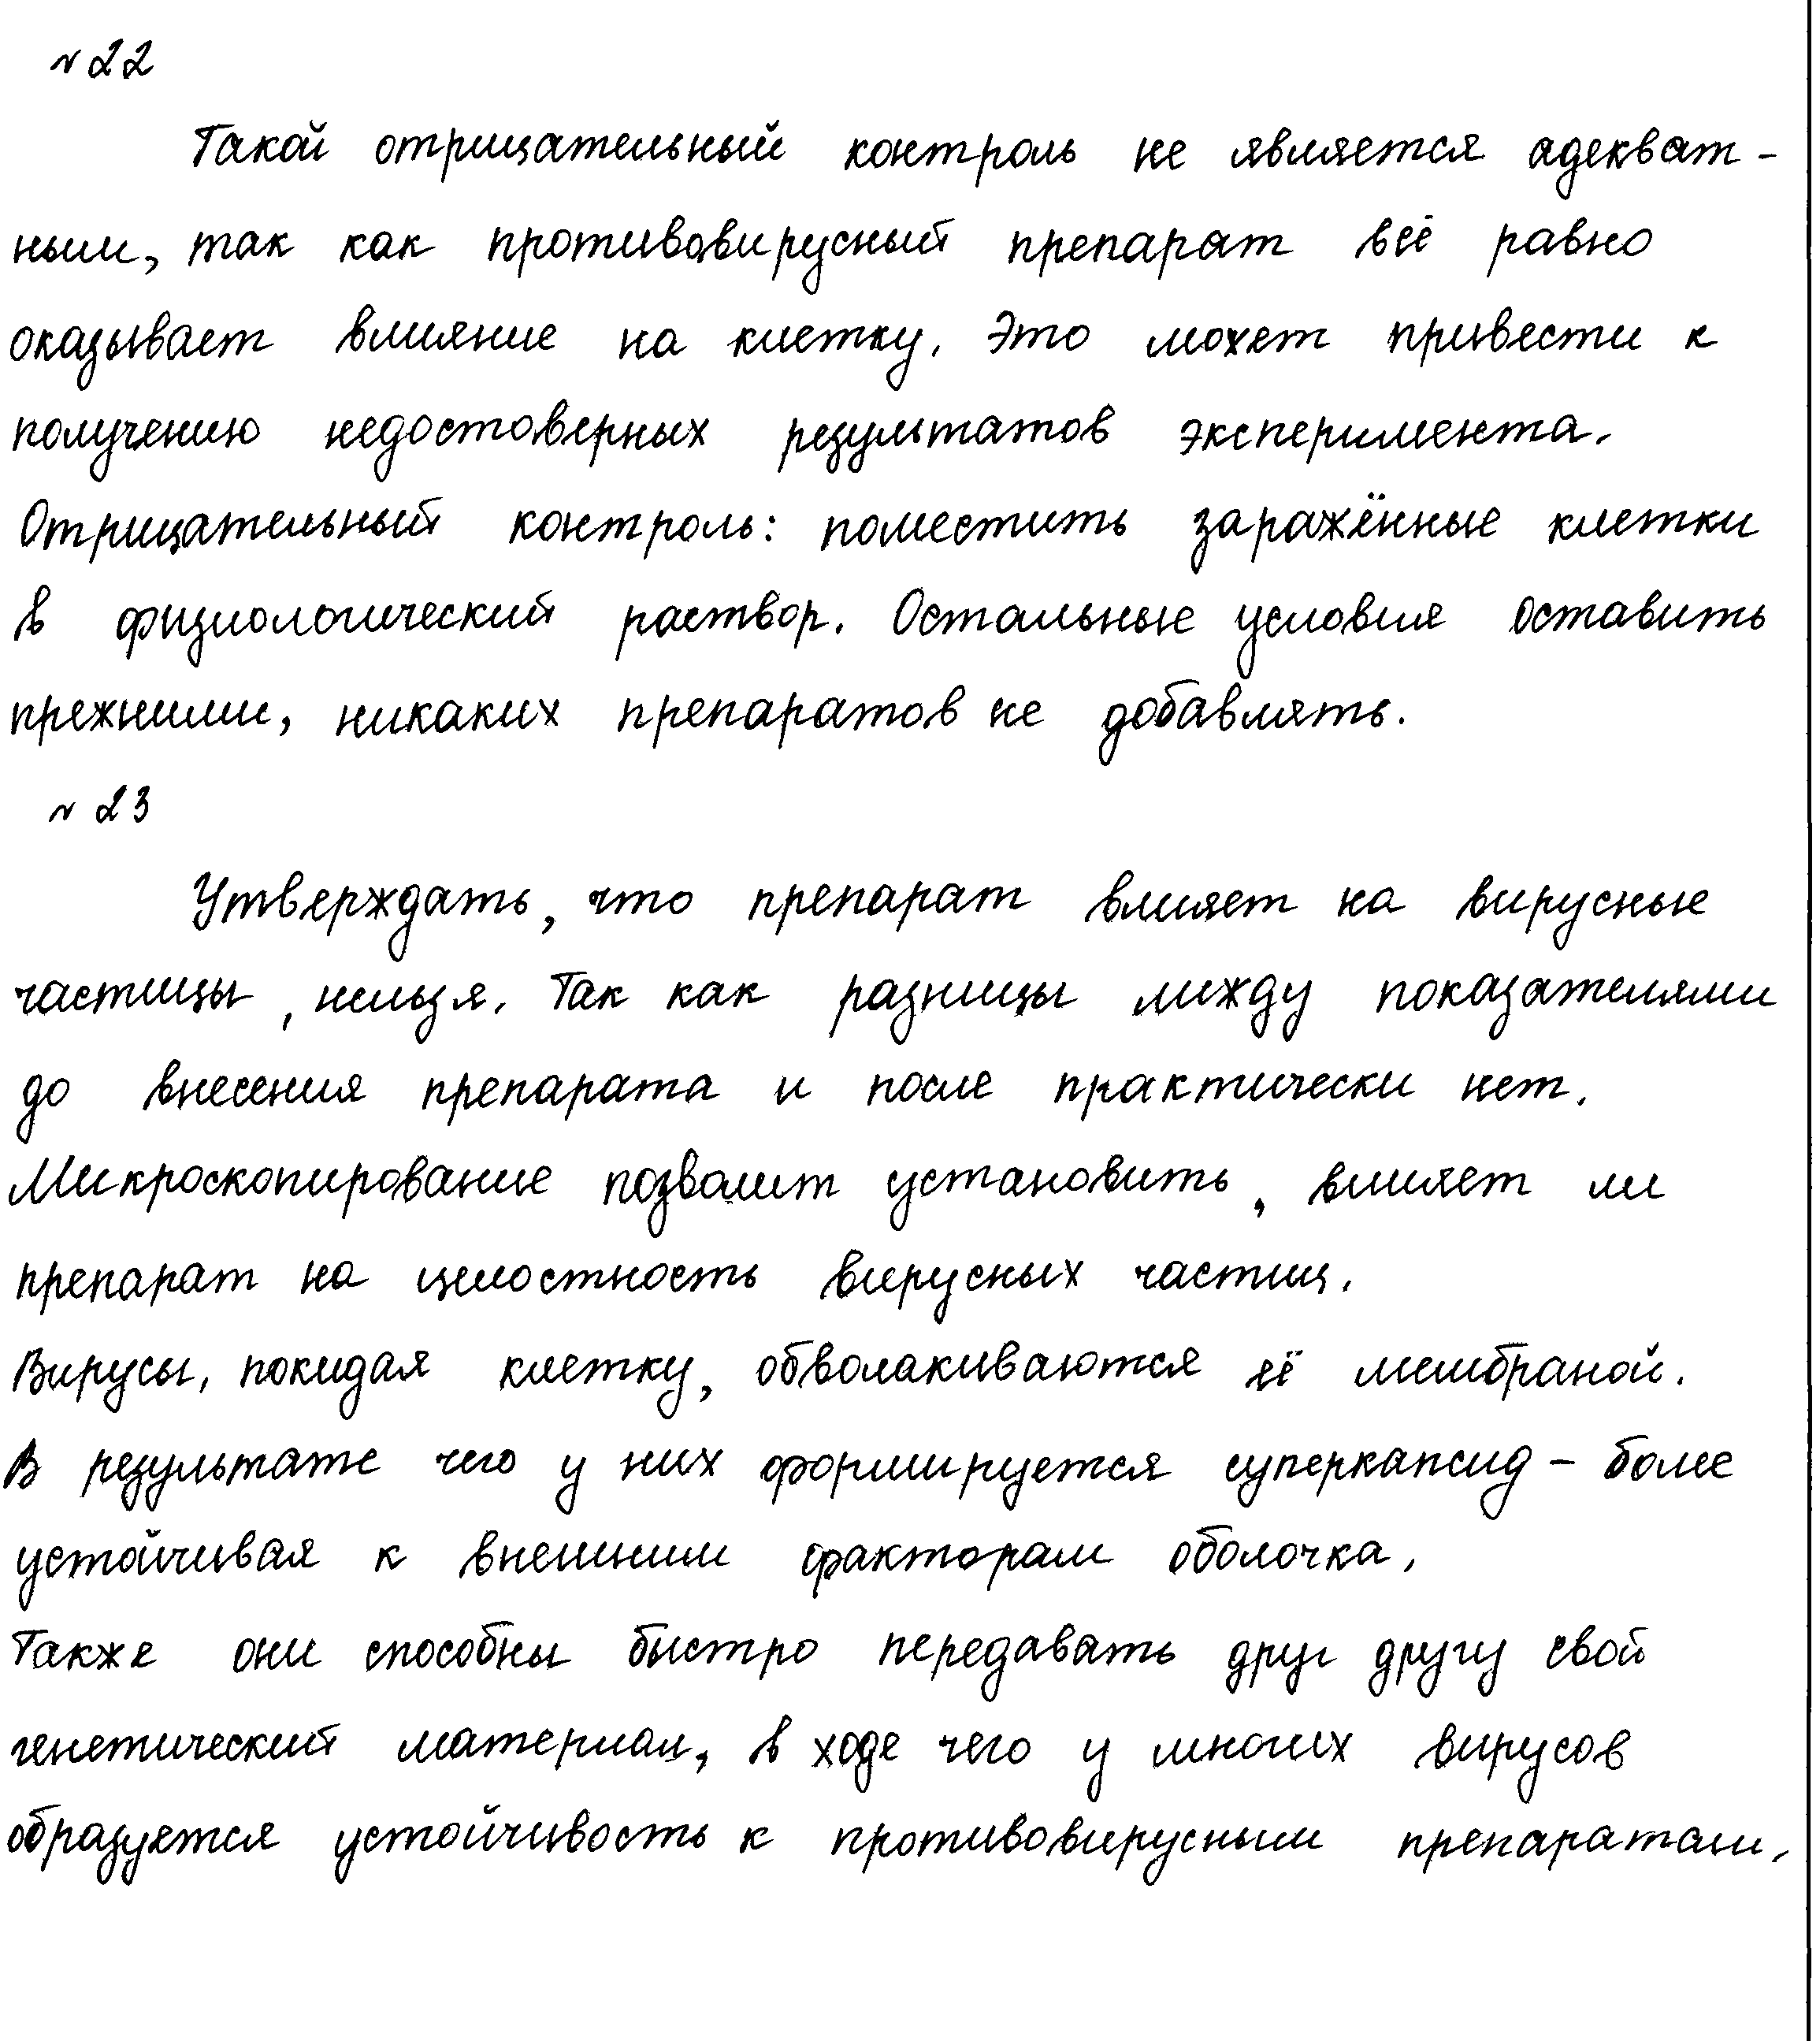 №22
Такой отрицательный контроль не является адекват-
ным, так как противовирусный препарат всё равно
оказывает влияние на клетку. Это может привести к
получению недостоверных результатов эксперимента.
Отрицательный контроль: поместить заражённые клетки
в физиологический раствор. Остальные условия оставить
прежними, никаких препаратов не добавлять.
№23
Утверждать, что препарат влияет на вирусные
частицы, нельзя. Так как разницы между показателями
до внесения препарата и после практически нет.
Микроскопирование позволит установить, влияет ли
препарат на целостность вирусных частиц.
Вирусы, покидая клетку, обволакиваются её мембраной.
В результате чего у них формируется суперкапсид - более
устойчивая к внешним факторам оболочка.
Также они способны быстро передавать друг другу свой
генетический материал, в ходе чего у многих вирусов
образуется устойчивость к противовирусным препаратам.